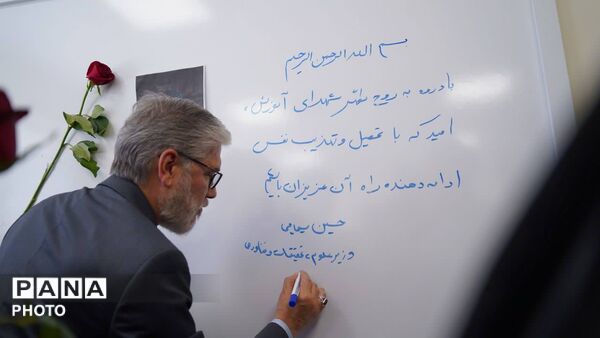 بسم الله الرحمن الرحیم
با درود به روح مطهر شهدای آموزش،
امید که با تحصیل و تهذیب نفس
ادامه دهنده راه آن عزیزان باشیم
حسین سیمایی
وزیر علوم، تحقیقات و فناوری
PANA
PHOTO